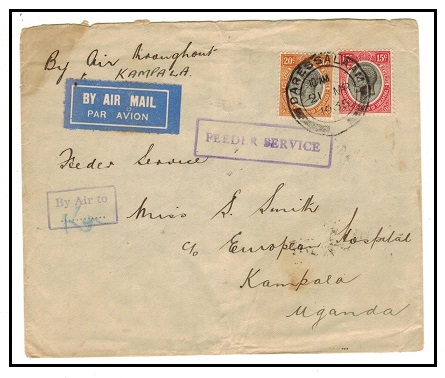 By Air throughout
to KAMPALA.
20
15
DARESSALAAM
21 MR
1935
BY AIR MAIL
PAR AVION
FEEDER SERVICE
Feeder Service
By Air to
Miss S. Smith
c/o European Hospital
Kampala
Uganda